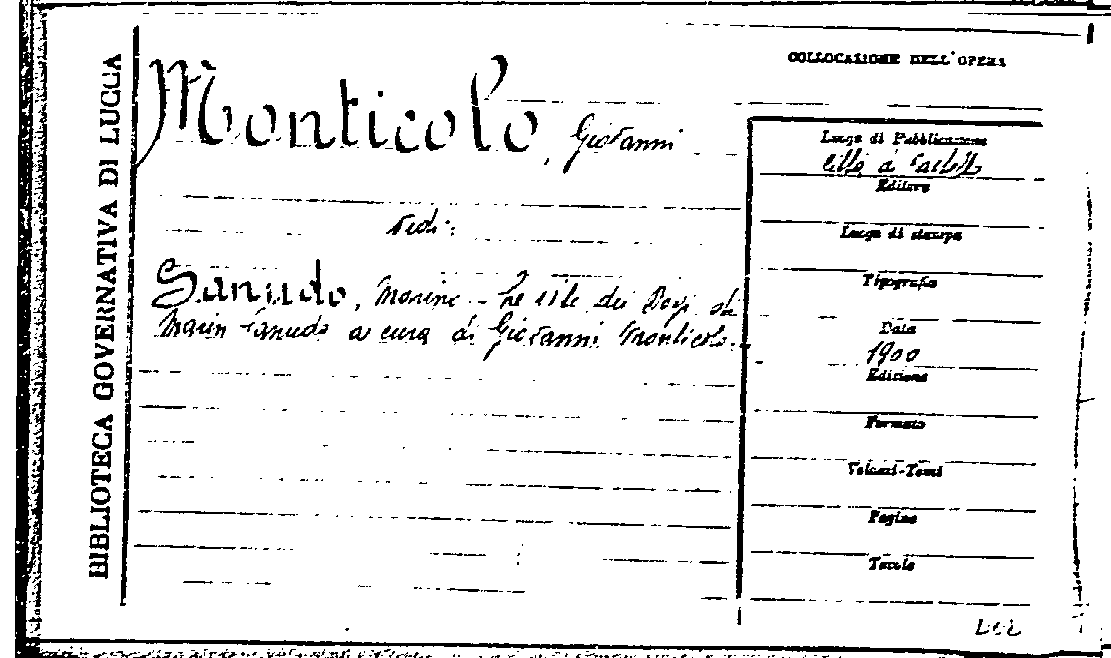 BIBLIOTECA GOVERNATIVA DI LUCCA
COLLOCAZIONE DELL'OPERA
Monticolo, Giovanni
Vedi:
Sanudo, Marino - Le vite dei Dogi di
Marin Sanudo a cura di Giovanni Monticolo.
Luogo di Pubblicazione
Città di Castello
Editore
Luogo di stampa
Tipografia
Data
1900
Edizione
Formato
Volumi-Tomi
Pagine
Tavole